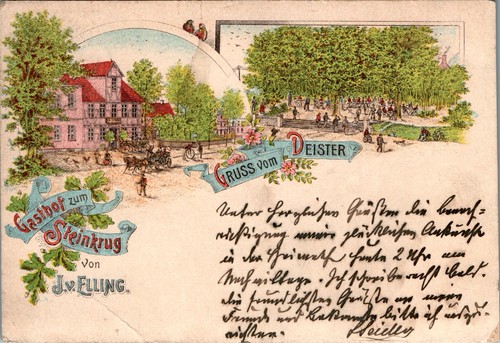 Gruss vom Deister
Gasthof zum
Steinkrug
von
J. v. Elling.
Unter herzlichen Grüßen die benach-
richtigung meine glücklichen Ankunft
in der Heimath heute 2 Uhr am
Nachmittage. Ich schreibe recht bald.
die freundlichsten Grüße an meine
Freunde und Bekannte bitte ich auszu-
richten.